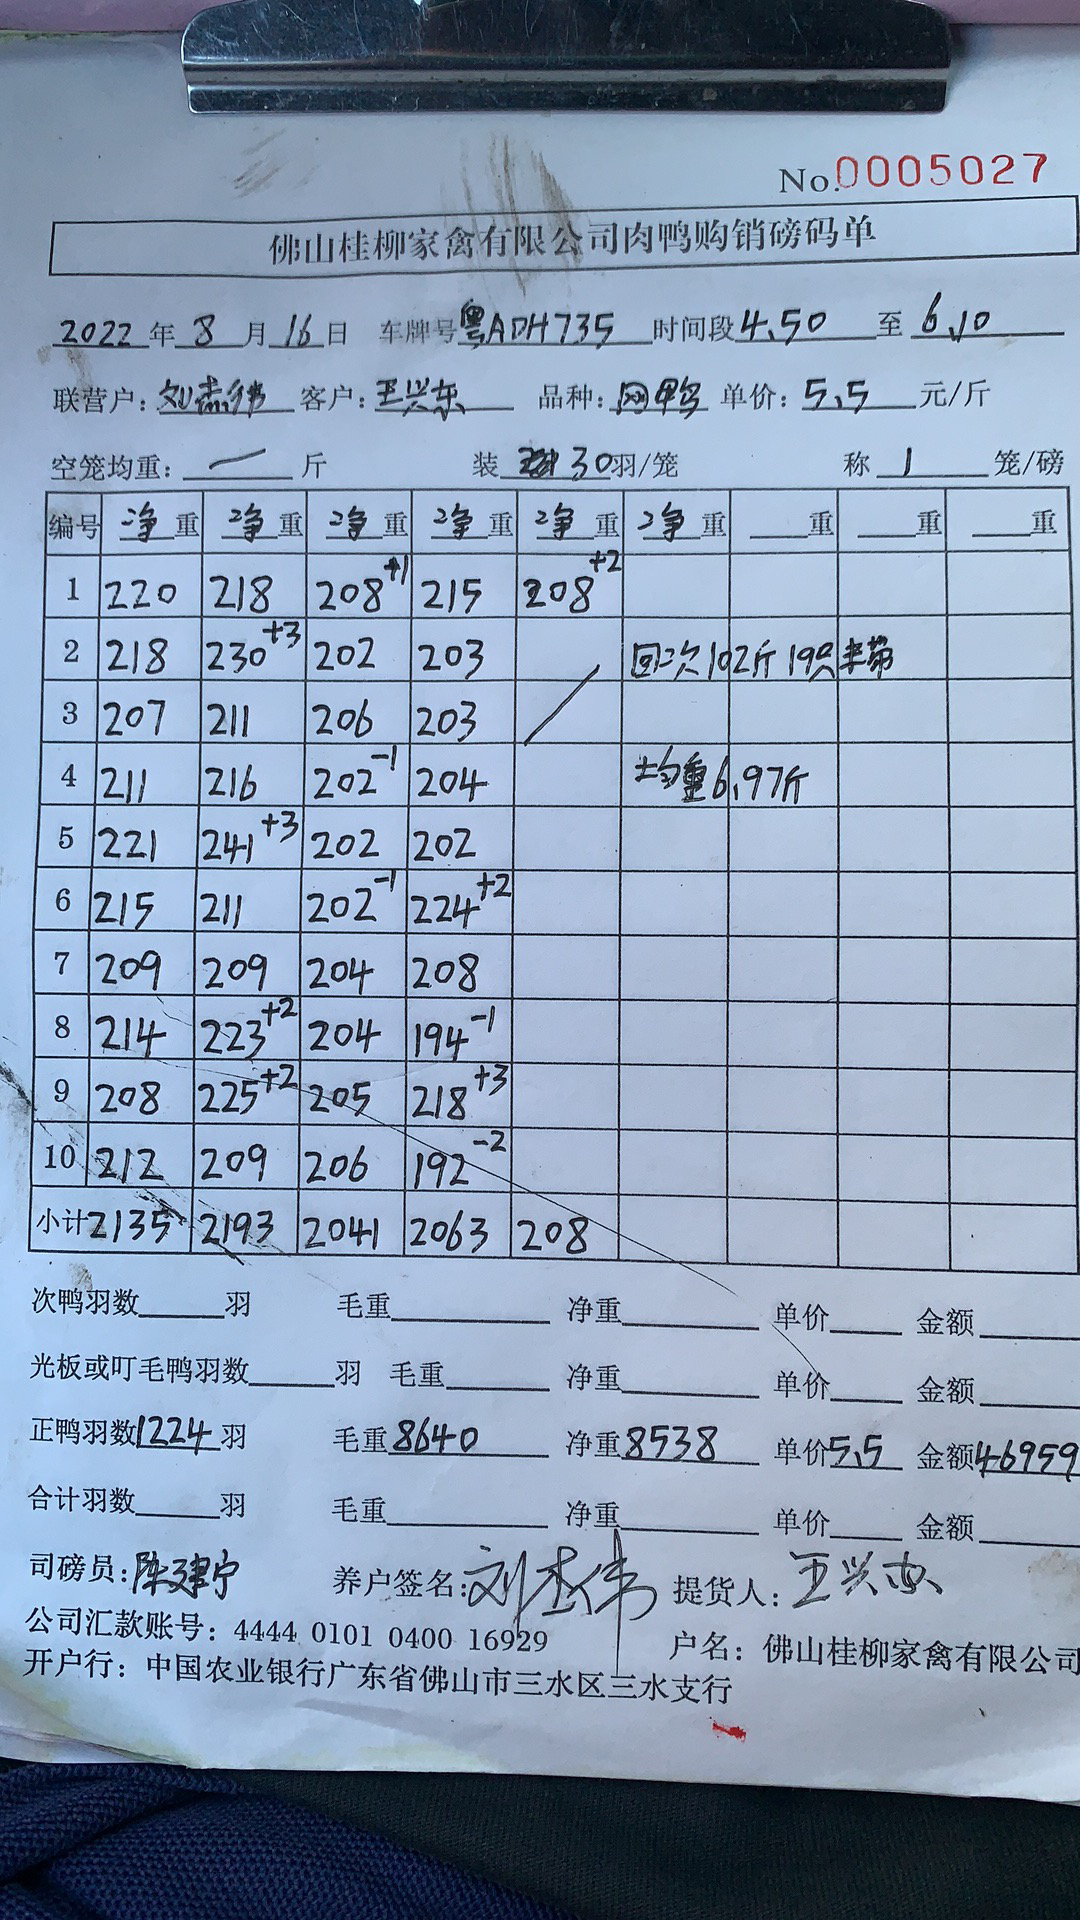 No.0005027
佛山桂柳家禽有限公司肉鸭购销磅码单
2022年8月16日 车牌号粤ADH735 时间段4.50至6.10
联营户:刘志伟 客户:王兴东 品种:网鸭 单价:5.5元/斤
空笼均重:一斤 装30羽/笼 称1笼/磅
编号 净重 净重 净重 净重 净重 净重 重 重 重
1 220 218 208+1 215 208+2
2 218 230+3 202 203 回次102斤19只未带
3 207 211 206 203
4 211 216 202-1 204 均重6.97斤
5 221 241+3 202 202
6 215 211 202-1 224+2
7 209 209 204 208
8 214 223+2 204 194-1
9 208 225+2 205 218+3
10 212 209 206 192-2
小计 2135 2193 2041 2063 208
次鸭羽数 羽 毛重 净重 单价 金额
光板或叮毛鸭羽数 羽 毛重 净重 单价 金额
正鸭羽数1224羽 毛重8640 净重8538 单价5.5 金额46959
合计羽数 羽 毛重 净重 单价 金额
司磅员:陈建宁 养户签名: 提货人:王兴东
公司汇款账号:4444 0101 0400 16929 户名:佛山桂柳家禽有限公司
开户行:中国农业银行广东省佛山市三水区三水支行